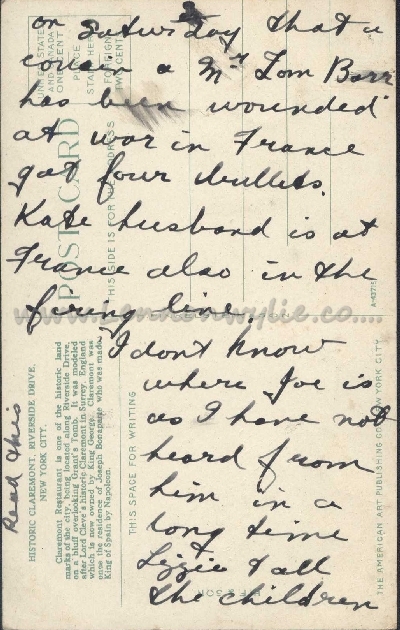 on Saturday that a
cousin a Mr Tom Barr
has been wounded
at war in France
got four bullets.
Kate husband is at
France also in the
firing line.
I dont know
where Joe is
as I have not
heard from
him in a
long time
Lizzie & all
the children
Read this
UNITED STATES
AND CANADA
ONE CENT
PLACE
STAMP HERE
FOREIGN
TWO CENTS
POST CARD
THIS SIDE IS FOR THE ADDRESS
HISTORIC CLAREMONT, RIVERSIDE DRIVE,
NEW YORK CITY.
Claremont Restaurant is one of the historic land
marks of the city, being located along Riverside Drive,
on a bluff overlooking Grant's Tomb. It was modeled
after Lord Clive's historic Claremont in Surrey, England
which is now owned by King George. Claremont was
once the residence of Joseph Bonaparte who was made
King of Spain by Napoleon.
THIS SPACE FOR WRITING
THE AMERICAN ART PUBLISHING CO., NEW YORK CITY